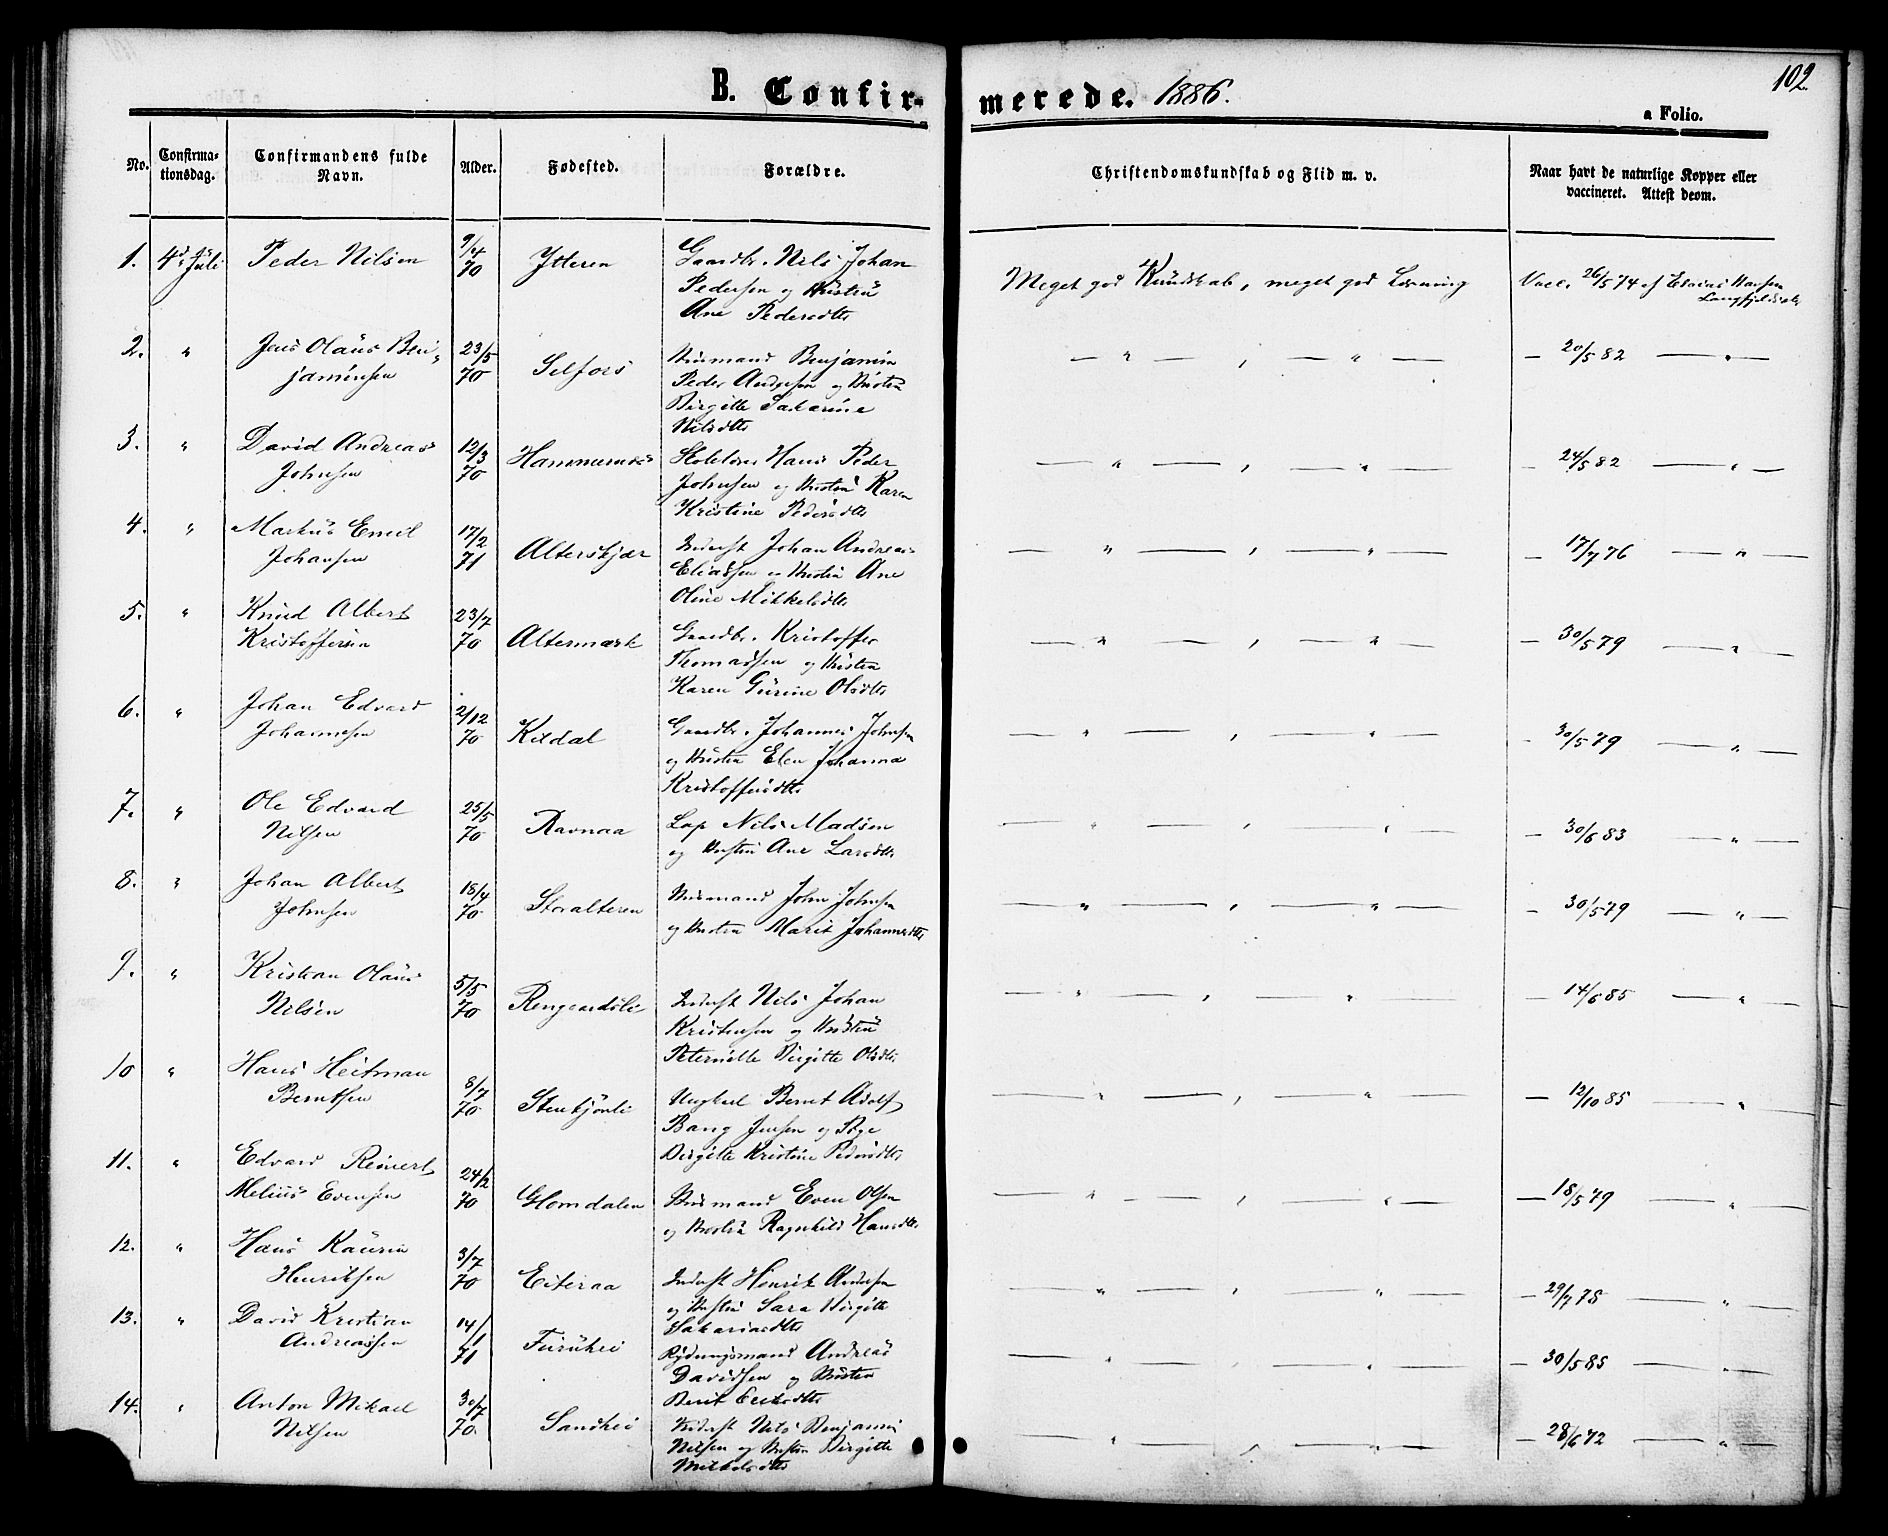 102.
B. Confirmerede. 1886.
a Folio.
No. Confirmationsdag. Confirmandens fulde Navn. Alder. Fødested. Forældre. Christendomskundskab og Flid m. v. Naar havt de naturlige Kopper eller vaccineret. Attest derom.
1. 4de Juli Peder Nilsen 9/4 70 Ytteren Gaardbr. Nils Johan
Pedersen og Hustru
Ane Pedersdtr
Meget god Kundskab, meget god Lærning Vacc. 26/5 74 af Esaias Hansen
Langfjeld
2. " Jens Olaus Ben-
jaminsen 23/5 70 Selfors Husmand Benjamin
Peder Andersen og Hustru
Birgitte Sakarine
Nilsdtr
— " — , — " — — 20/5 82 — " —
3. " David Andreas
Johnsen 12/3 70 Hammernes Skolelærer Hans Peder
Johnsen og Hustru Karen
Kristine Pedersdtr
— " — , — " — — 24/5 82 — " —
4. " Markus Emil
Johansen 17/2 71 Alterskjær Inderst Johan Andreas
Eliassen og Hustru Ane
Oline Mikkelsdtr
— " — , — " — — 17/7 76 — " —
5. " Knud Albert
Kristoffersen 23/7 70 Altermark Gaardbr. Kristoffer
Thomassen og Hustru
Karen Gurine Olsdtr
— " — , — " — — 30/5 79 — " —
6. " Johan Edvard
Johannesen 2/12 70 Kildal Gaardbr. Johannes Johnsen
og Hustru Elen Johanna
Kristoffersdtr
— " — , — " — — 30/5 79 — " —
7. " Ole Edvard
Nilsen 25/5 70 Ravnaa Lap Nils Madsen
og Hustru Ane Larsdtr
— " — , — " — — 30/6 83 — " —
8. " Johan Albert
Johnsen 18/4 70 Storalteren Husmand John Johnsen
og Hustru Marit Johannesdtr
— " — , — " — — 30/5 79 — " —
9. " Kristian Olaus
Nilsen 5/5 70 Rengaardsli Inderst Nils Johan
Kristensen og Hustru
Peternille Birgitte Olsdtr
— " — , — " — — 14/6 85 — " —
10 " Hans Heitman
Berntsen 8/7 70 Stenkjønli Ungkarl Bernt Adolf
Bang Jensen og Pige
Birgitte Kristine Pedersdtr
— " — , — " — — 12/10 85 — " —
11. " Edvard Reinert
Melius Evensen 24/2 70 Glomdalen Husmand Even Olsen
og Hustru Ragnhild Hansdtr
— " — , — " — — 18/5 79 — " —
12. " Hans Kaurin
Henriksen 3/7 70 Eiteraa Inderst Henrik Andersen
og Hustru Sara Birgitte
Sakariasdtr
— " — , — " — — 29/7 78 — " —
13. " David Kristian
Andreassen 14/1 71 Furuhei Rydningsmand Andreas
Davidsen og Hustru
Berit Eriksdtr
— " — , — " — — 30/5 85 — " —
14. " Anton Mikael
Nilsen 30/7 70. Sandhei Inderst Nils Benjamin
Nilsen og Hustru Birgitte
Mikkelsdtr
— " — , — " — — 28/6 72 — " —